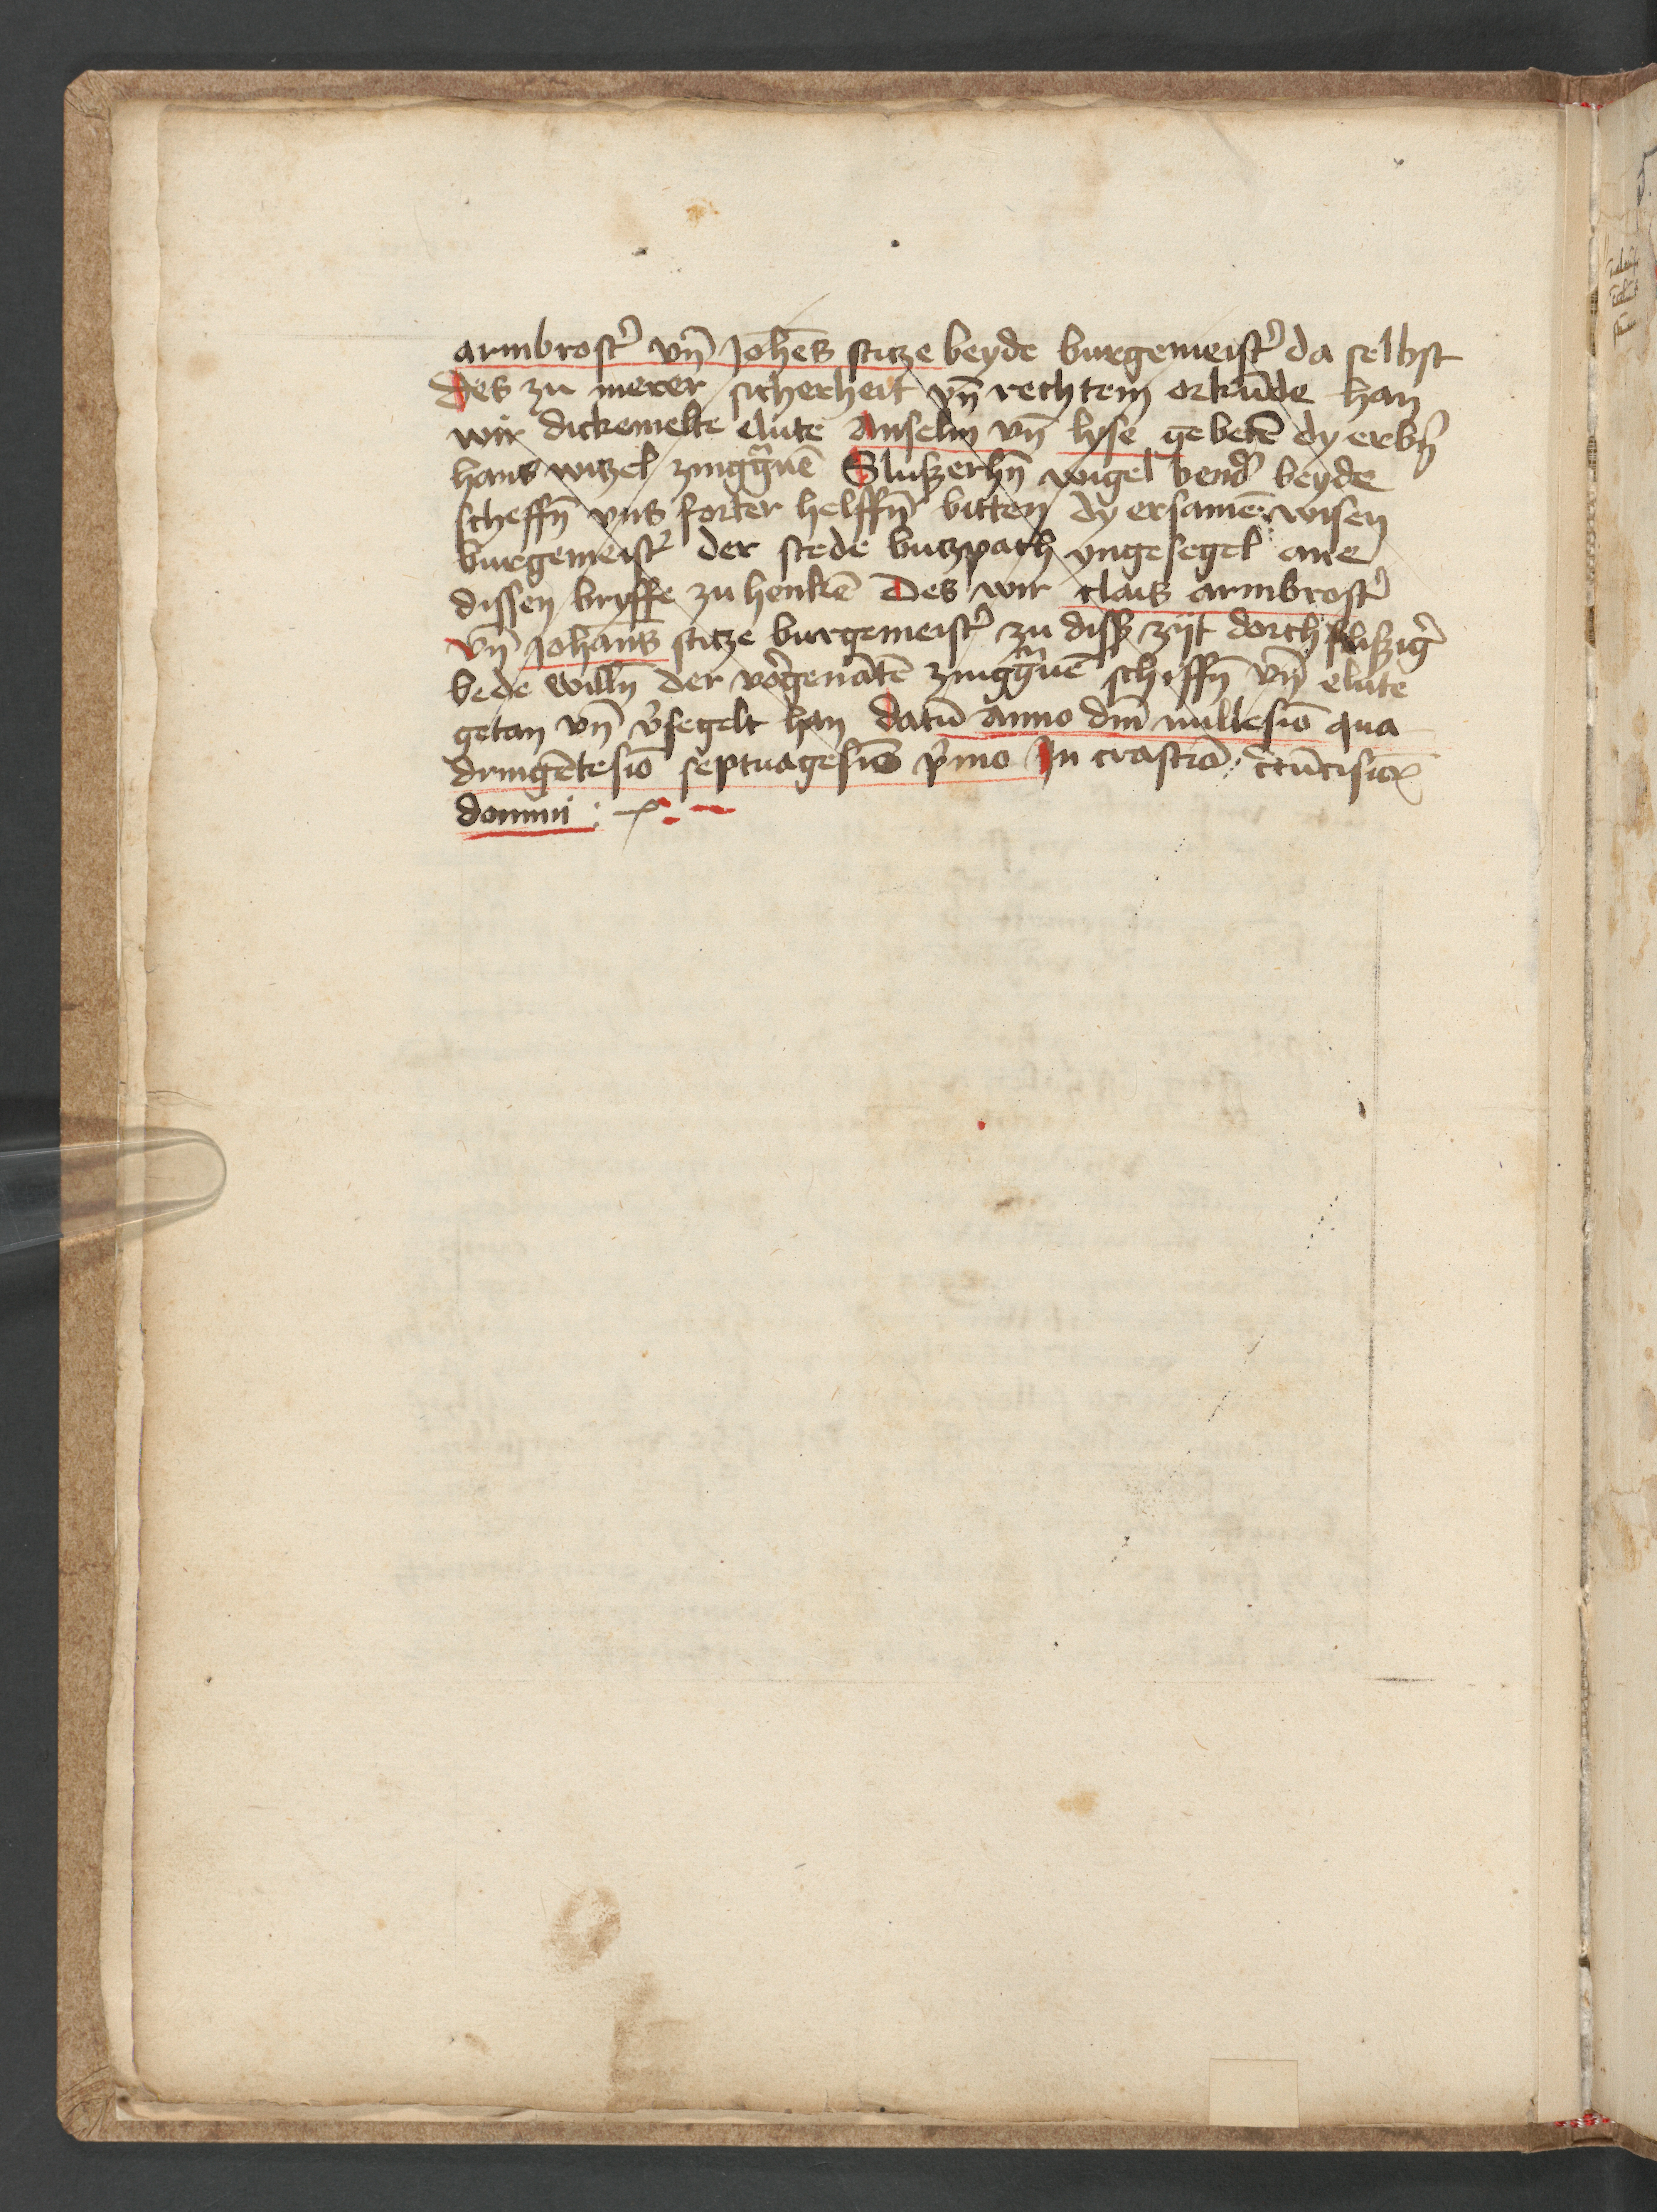 armbrost͛ vn̄ Joh̄es stitze beyde burgemeist͛ da selbst
Des zu merer sicherheit vn̄ rechtem orkūde han
wir dickemelte elute Anselm vn̄ lyse gebetē dy erbn̄
hans witzel zinggͣuē Slußerhn̄ wigel bend͛ beyde
scheffn̄ vns forter helffn̄ bitten dy ersamē wisen
burgemeist͛ der stede butzpach yngesegel ane
dissen bryffe zu henkē Des wir clais armbrost͛
vn̄ Johans stitze burgemeist͛ zu disß zijt dorch flißig͛
bede willn̄ der vorgenātē zinggͣuē schiffn̄ vn̄ elute
getan vn̄ v͛segelt han datū anno dm̄ millesiō qua
dringētesiō septuagesiō p͛mo In crastīo c͛cūcisiōs
domini